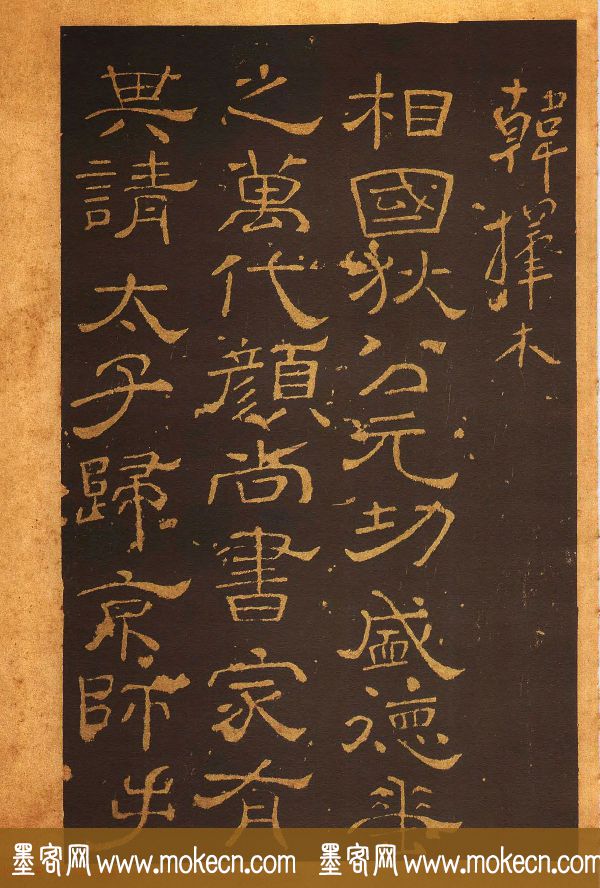 韓擇木
相國狄公元功盛德垂
之萬代顔尚書家有
其請太子歸京師
墨客网 www.mokecn.com 墨客网 www.mokecn.com